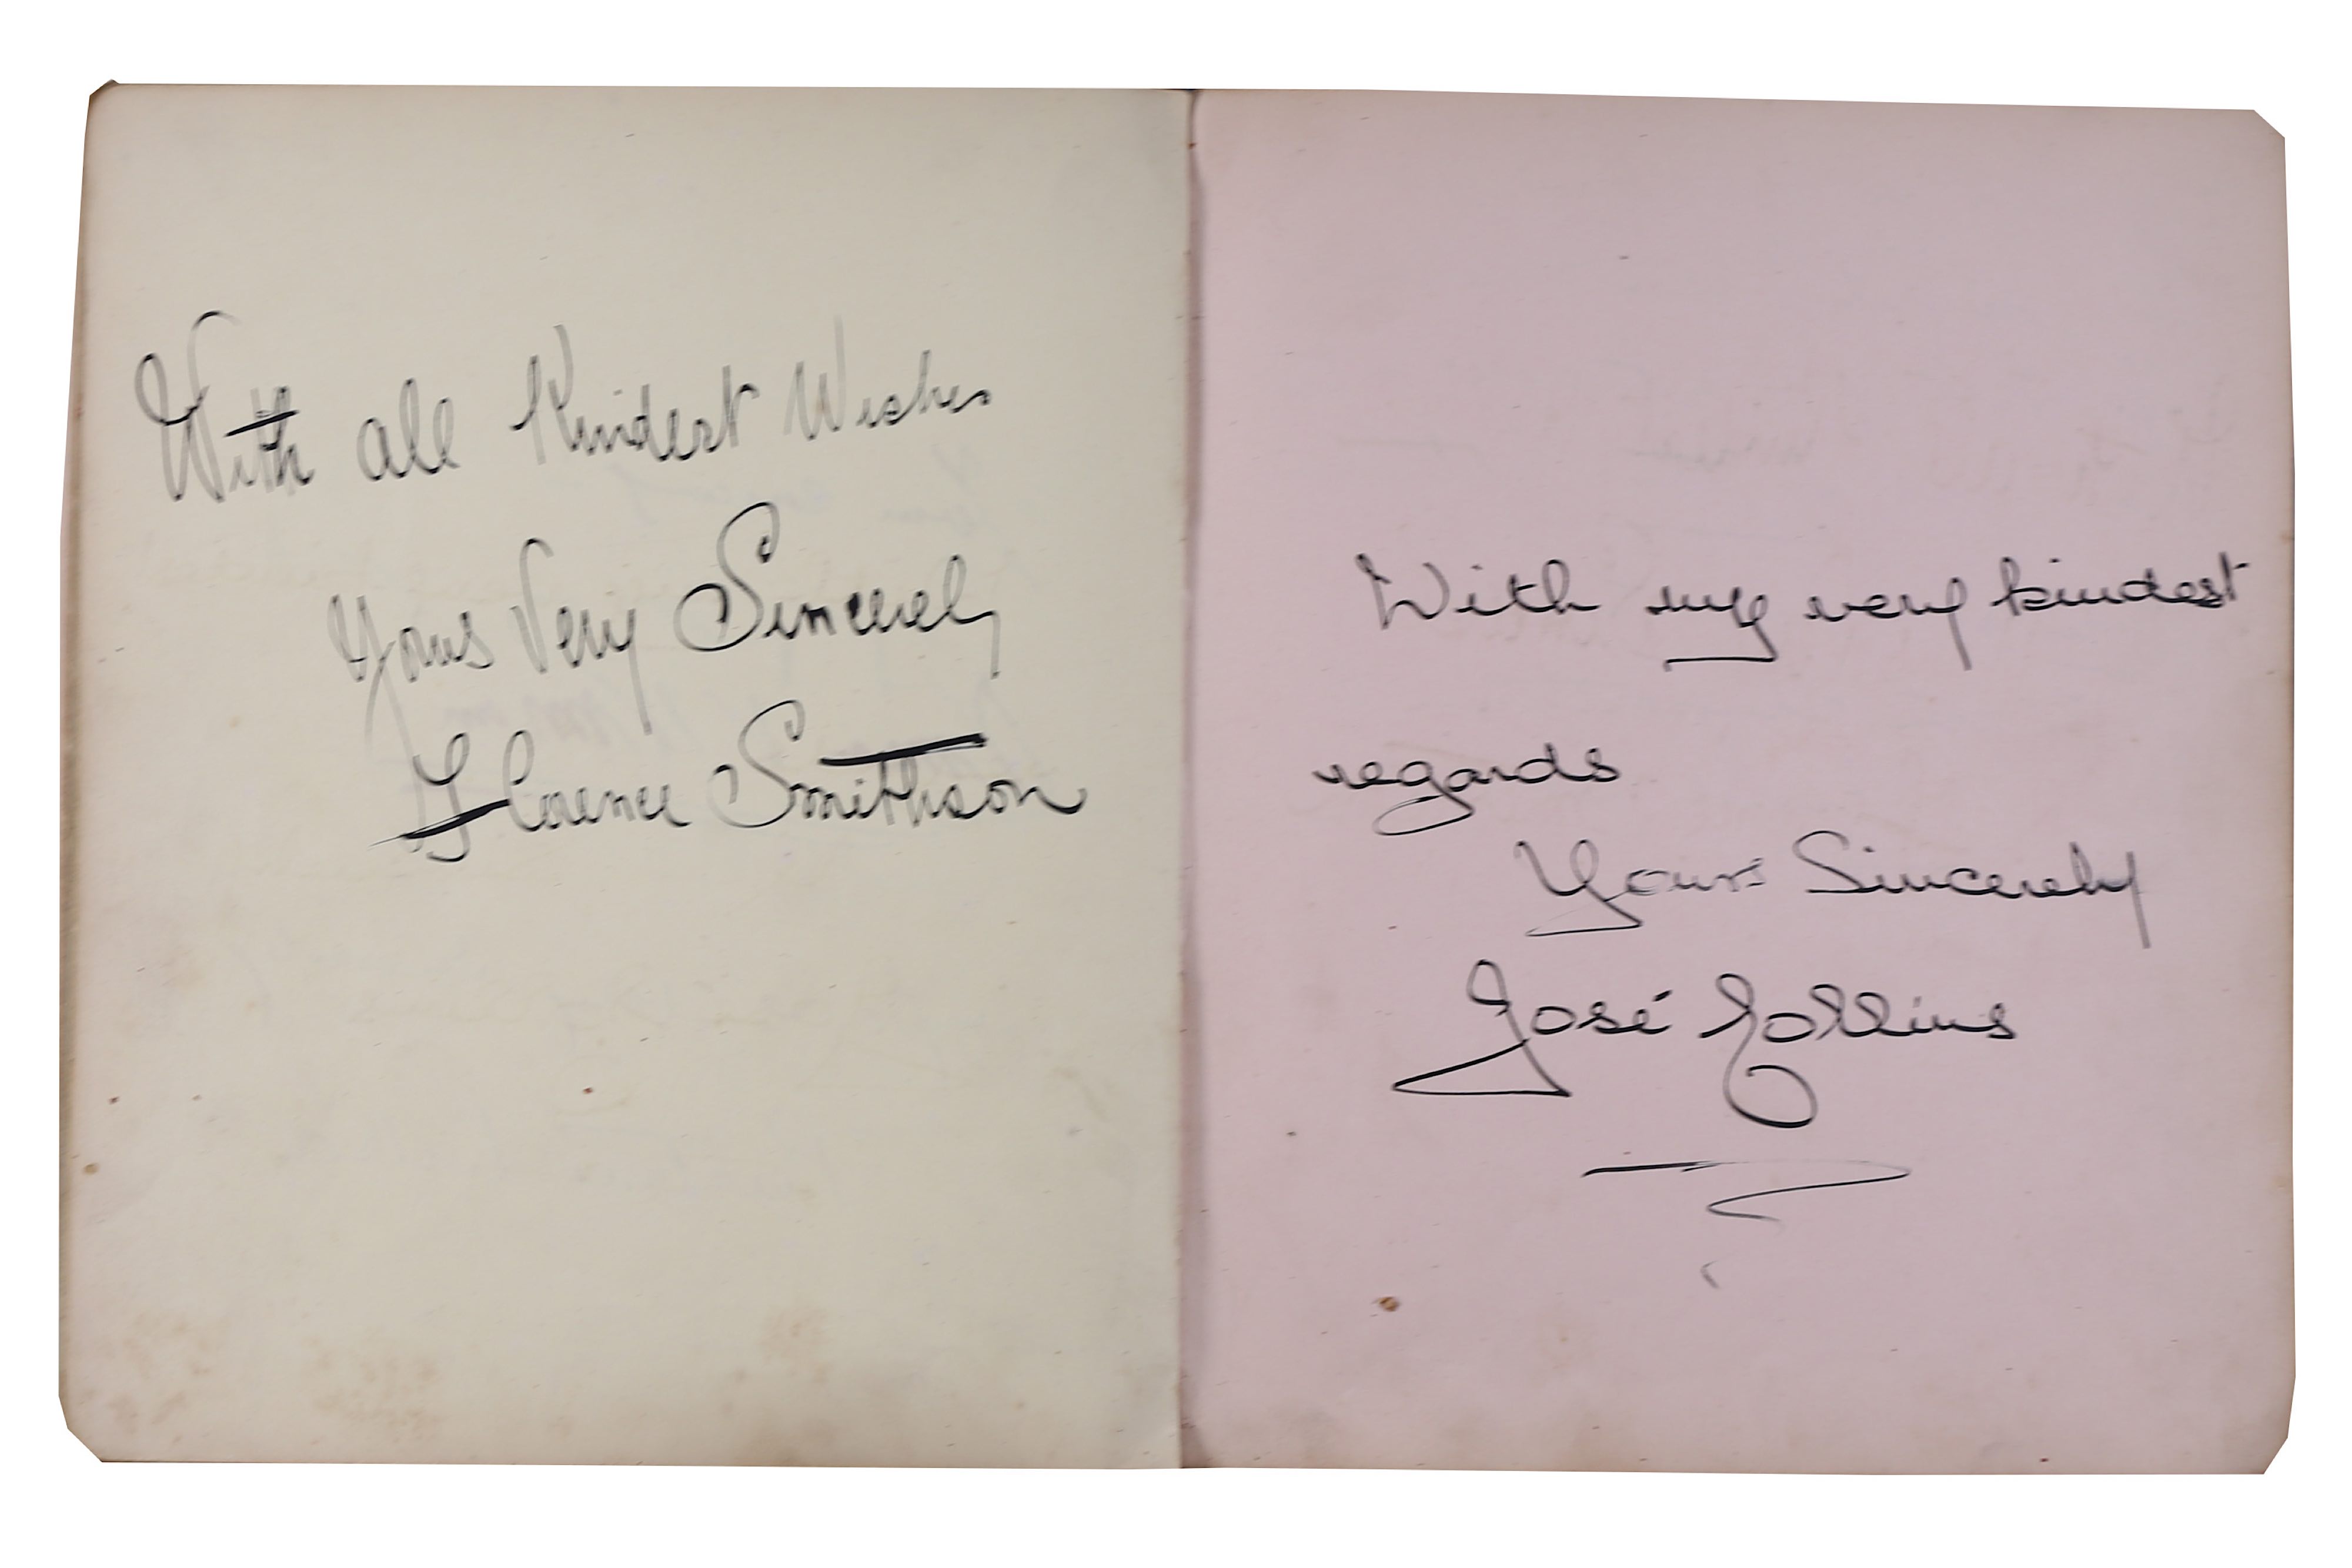 With all Kindest Wishes
Yours Very Sincerely
Florence Smithson
With my very kindest
regards
Yours Sincerely
José Collins